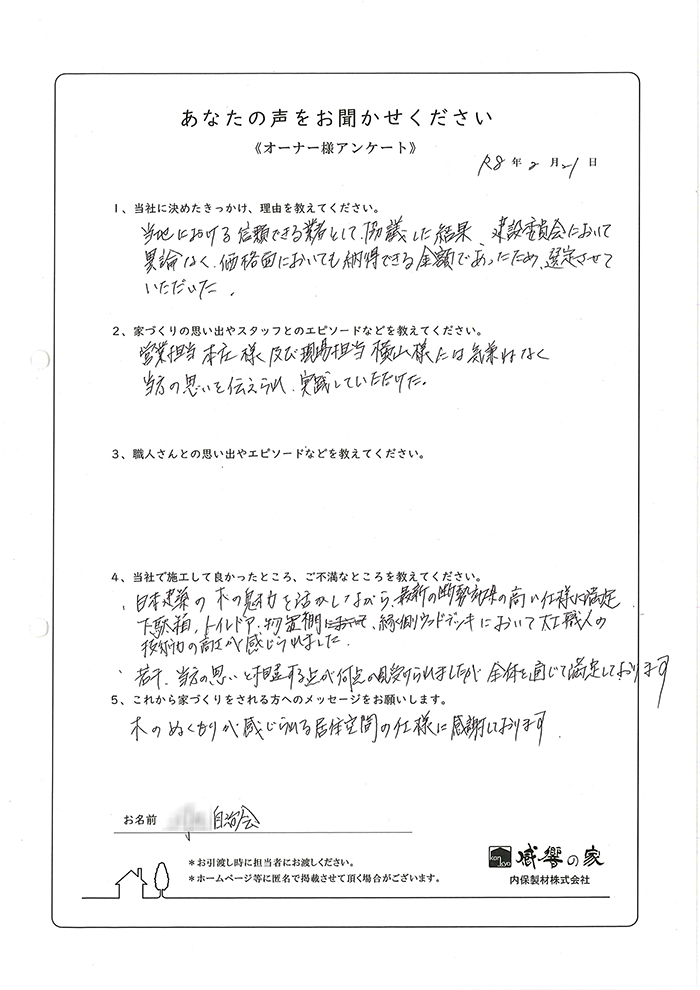 あなたの声をお聞かせください
《オーナー様アンケート》
R8年2月21日
1、当社に決めたきっかけ、理由を教えてください。
当地における信頼できる業者として、協議した結果、建設委員会において
異論なく、価格面においても納得できる金額であったため、選定させて
いただいた。
2、家づくりの思い出やスタッフとのエピソードなどを教えてください。
営業担当 本庄様及び現場担当 横山様には気兼ねなく
当方の思いを伝えられ、実践していただけた。
3、職人さんとの思い出やエピソードなどを教えてください。
4、当社で施工して良かったところ、ご不満なところを教えてください。
、日本建築の木の魅力を活かしながら、最新の断熱効果の高い仕様に満足
下駄箱、トイレドア、物置棚、縁側ウッドデッキにおいて大工職人の
技術力の高さが感じられました
・若干、当方の思いと相違する点が何点か見受けられましたが 全体を通じて満足しております
5、これから家づくりをされる方へのメッセージをお願いします。
木のぬくもりが感じられる居住空間の仕様に感謝しております
お名前 自治会
＊お引渡し時に担当者にお渡しください。
＊ホームページ等に匿名で掲載させて頂く場合がございます。
kan kyo 感響の家
内保製材株式会社